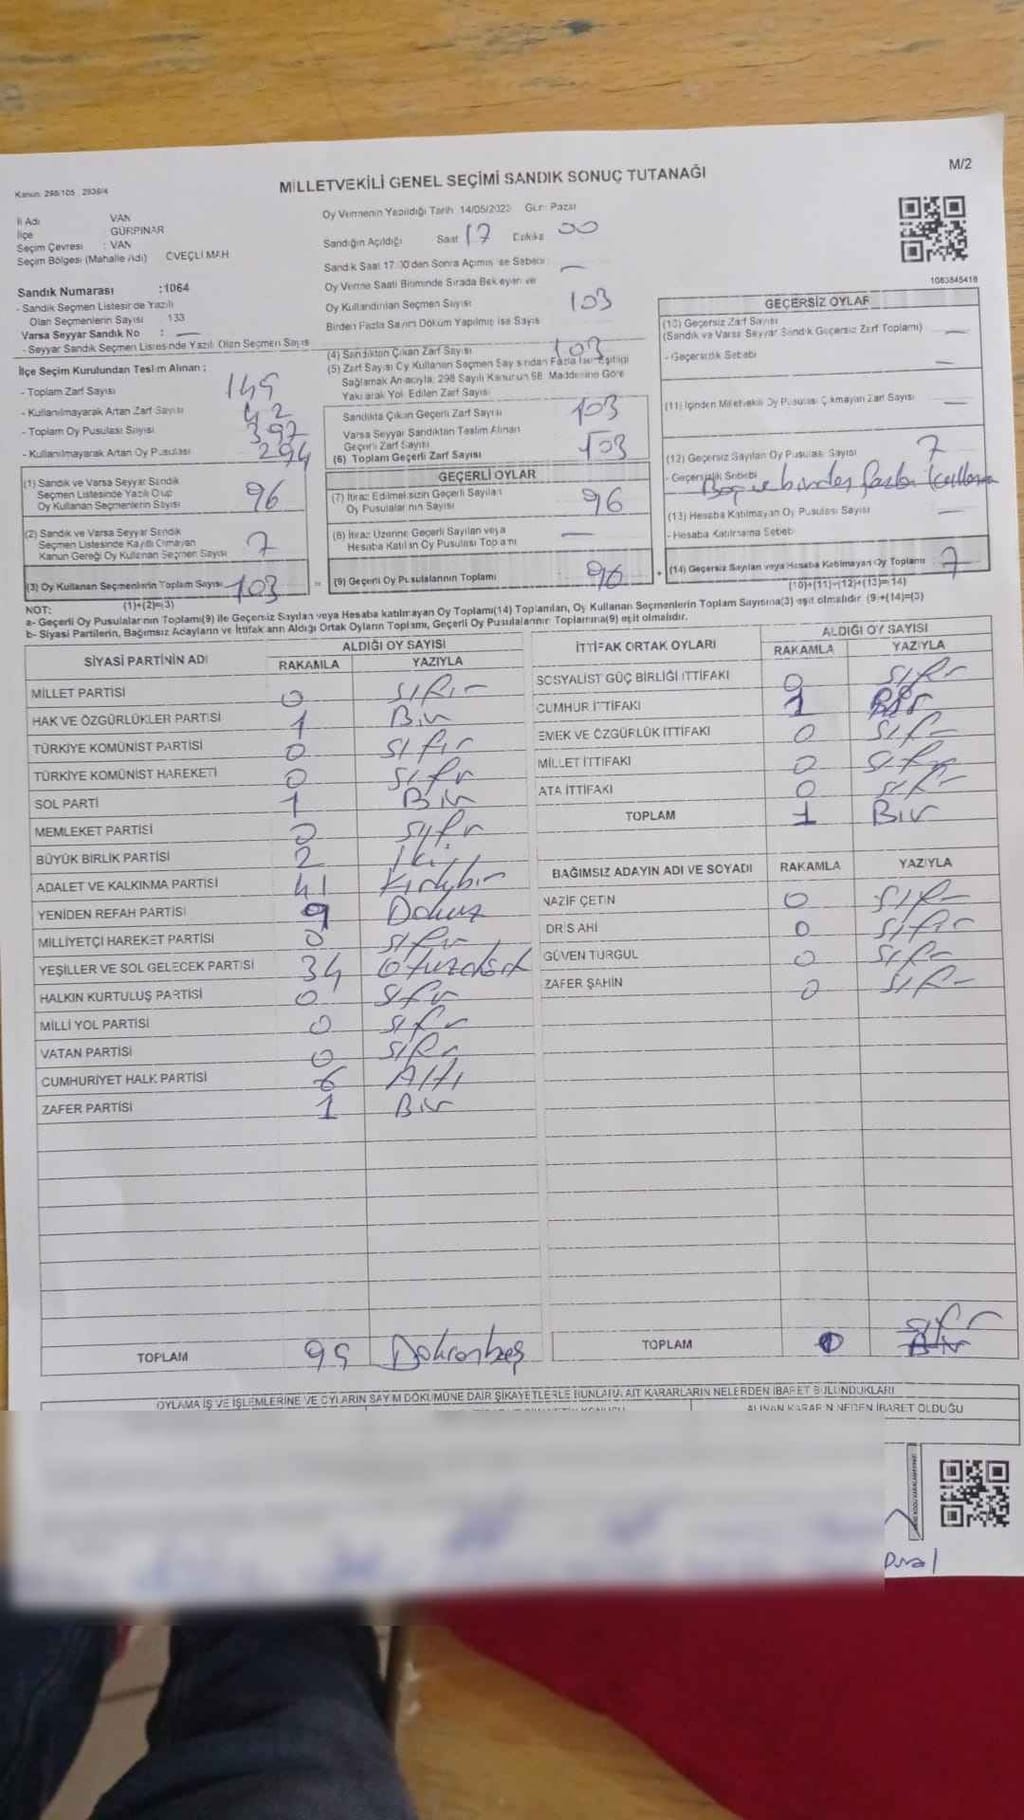 Kanun: 298/105 2839/4
MİLLETVEKİLİ GENEL SEÇİMİ SANDIK SONUÇ TUTANAĞI
M/2
İl Adı VAN
İlçe GÜRPINAR
Seçim Çevresi : VAN
Seçim Bölgesi (Mahalle Adı) CVEÇLİ MAH
Sandık Numarası :1064
- Sandık Seçmen Listesinde Yazılı
Olan Seçmenlerin Sayısı 133
Varsa Seyyar Sandık No : —
- Seyyar Sandık Seçmen Listesinde Yazılı Olan Seçmen Sayısı
Oy Vermenin Yapıldığı Tarih 14/05/2023 Gün: Pazar
Sandığın Açıldığı Saat 17 Dakika 00
Sandık Saat 17:00'den Sonra Açılmış ise Sebebi —
Oy Verme Saati Bitiminde Sırada Bekleyen ve
Oy Kullandırılan Seçmen Sayısı 103
Birden Fazla Sayım Döküm Yapılmış ise Sayısı
1083845418
İlçe Seçim Kurulundan Teslim Alınan :
- Toplam Zarf Sayısı 145
- Kullanılmayarak Artan Zarf Sayısı 42
- Toplam Oy Pusulası Sayısı 397
- Kullanılmayarak Artan Oy Pusulası 294
(1) Sandık ve Varsa Seyyar Sandık
Seçmen Listesinde Yazılı Olup
Oy Kullanan Seçmenlerin Sayısı 96
(2) Sandık ve Varsa Seyyar Sandık
Seçmen Listesinde Kayıtlı Olmayan
Kanun Gereği Oy Kullanan Seçmen Sayısı 7
(3) Oy Kullanan Seçmenlerin Toplam Sayısı 103
(1)+(2)=(3)
(4) Sandıktan Çıkan Zarf Sayısı 103
(5) Zarf Sayısı Oy Kullanan Seçmen Sayısından Fazla İse Eşitliği
Sağlamak Amacıyla, 298 Sayılı Kanunun 98. Maddesine Göre
Yakılarak Yok Edilen Zarf Sayısı
Sandıkta Çıkan Geçerli Zarf Sayısı 103
Varsa Seyyar Sandıktan Teslim Alınan
Geçerli Zarf Sayısı
(6) Toplam Geçerli Zarf Sayısı 103
GEÇERLİ OYLAR
(7) İtiraz Edilmeksizin Geçerli Sayılan
Oy Pusulalarının Sayısı 96
(8) İtiraz Üzerine Geçerli Sayılan veya
Hesaba Katılan Oy Pusulası Toplamı —
(9) Geçerli Oy Pusulalarının Toplamı 96
GEÇERSİZ OYLAR
(10) Geçersiz Zarf Sayısı
(Sandık ve Varsa Seyyar Sandık Geçersiz Zarf Toplamı) —
- Geçersizlik Sebebi —
(11) İçinden Milletvekili Oy Pusulası Çıkmayan Zarf Sayısı —
(12) Geçersiz Sayılan Oy Pusulası Sayısı 7
- Geçersizlik Sebebi fazla kullanma
(13) Hesaba Katılmayan Oy Pusulası Sayısı —
- Hesaba Katılmama Sebebi
(14) Geçersiz Sayılan veya Hesaba Katılmayan Oy Toplamı 7
(10)+(11)+(12)+(13)=(14)
NOT:
a- Geçerli Oy Pusulalarının Toplamı(9) ile Geçersiz Sayılan veya Hesaba katılmayan Oy Toplamı(14) Toplamları, Oy Kullanan Seçmenlerin Toplam Sayısına(3) eşit olmalıdır (9)+(14)=(3)
b- Siyasi Partilerin, Bağımsız Adayların ve İttifakların Aldığı Ortak Oyların Toplamı, Geçerli Oy Pusulalarının Toplamına(9) eşit olmalıdır.
SİYASİ PARTİNİN ADI ALDIĞI OY SAYISI
RAKAMLA YAZIYLA
MİLLET PARTİSİ 0 sıfır
HAK VE ÖZGÜRLÜKLER PARTİSİ 1 Bir
TÜRKİYE KOMÜNİST PARTİSİ 0 sıfır
TÜRKİYE KOMÜNİST HAREKETİ 0 sıfır
SOL PARTİ 1 Bir
MEMLEKET PARTİSİ 0 sıfır
BÜYÜK BİRLİK PARTİSİ 2 iki
ADALET VE KALKINMA PARTİSİ 41 Kırkbir
YENİDEN REFAH PARTİSİ 9 Dokuz
MİLLİYETÇİ HAREKET PARTİSİ 0 sıfır
YEŞİLLER VE SOL GELECEK PARTİSİ 34 Otuzdört
HALKIN KURTULUŞ PARTİSİ 0 sıfır
MİLLİ YOL PARTİSİ 0 sıfır
VATAN PARTİSİ 0 sıfır
CUMHURİYET HALK PARTİSİ 6 Altı
ZAFER PARTİSİ 1 Bir
TOPLAM 95 Doksanbeş
İTTİFAK ORTAK OYLARI ALDIĞI OY SAYISI
RAKAMLA YAZIYLA
SOSYALİST GÜÇ BİRLİĞİ İTTİFAKI 0 sıfır
CUMHUR İTTİFAKI 1 Bir
EMEK VE ÖZGÜRLÜK İTTİFAKI 0 sıfır
MİLLET İTTİFAKI 0 sıfır
ATA İTTİFAKI 0 sıfır
TOPLAM 1 Bir
BAĞIMSIZ ADAYIN ADI VE SOYADI RAKAMLA YAZIYLA
NAZİF ÇETİN 0 sıfır
İDRİS AHİ 0 sıfır
GÜVEN TURGUL 0 sıfır
ZAFER ŞAHİN 0 sıfır
TOPLAM 0 sıfır
OYLAMA İŞ VE İŞLEMLERİNE VE OYLARIN SAYIM DÖKÜMÜNE DAİR ŞİKAYETLERLE BUNLARA AİT KARARLARIN NELERDEN İBARET BULUNDUKLARI
ALINAN KARARIN NEDEN İBARET OLDUĞU